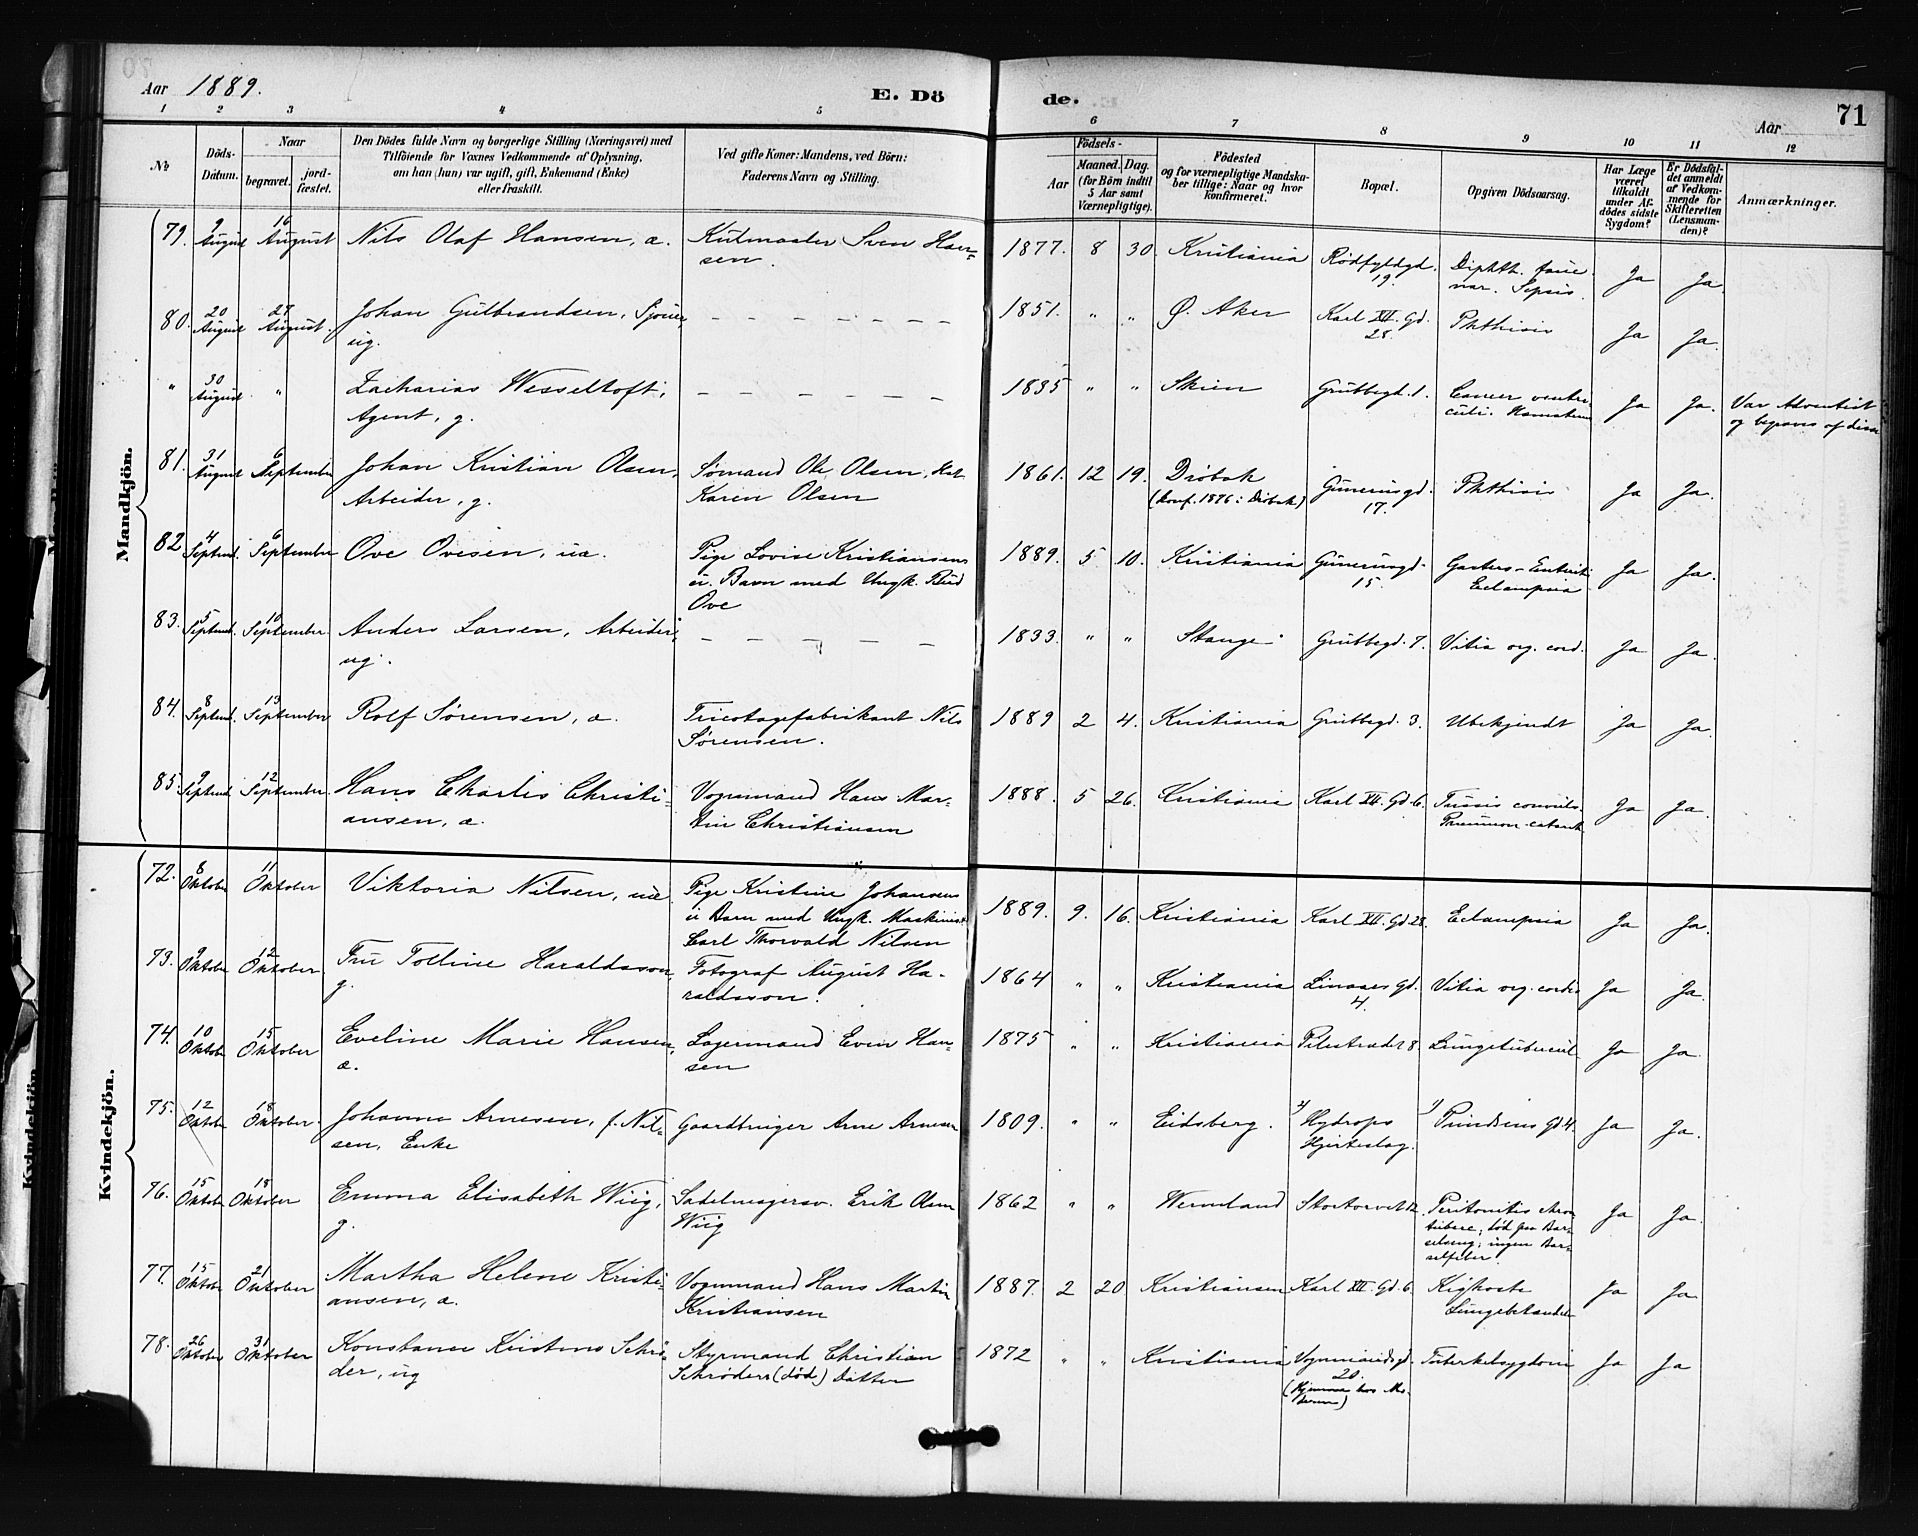 Aar 1889. E. Dö de. Aar 71
1 2 3 4 5 6 7 8 9 10 11 12
No
Döds-Datum.
Naar
begravet.
jord-fæstet.
Den Dödes fulde Navn og borgerlige Stilling (Næringsvei) med
Tilföiende for Voxnes Vedkommende af Oplysning,
om han (hun) var ugift, gift, Enkemand (Enke)
eller fraskilt.
Ved gifte Koner: Mandens, ved Börn:
Faderens Navn og Stilling.
Födsels-
Aar
Maaned. Dag.
(for Börn indtil
5 Aar samt
Værnepligtige).
Födested
og for værnepligtige Mandska-
ber tillige: Naar og hvor
konfirmeret.
Bopæl.
Opgiven Dödsaarsag.
Har Læge
været
tilkaldt
under Af-
dödes sidste
Sygdom?
Er Dödsfal-
det anmeldt
af Vedkom-
mende for
Skifteretten
(Lensman-
den)?
Anmærkninger.
Mandkjön.
79. 9 August 16 August Nils Olaf Hansen, a. Kulmaaler Sven Han-
sen. 1877. 8 30. Kristiania Rødfyldgd. 19. Diphth. fauc. nar. Sepsis. Ja Ja.
80. 20 August 27 August. Johan Gulbrandsen, Sjouer
ug. 1851. " " Ø. Aker Karl XII. Gd. 28. Phthisis Ja Ja.
" 30 August " Zacharias Wesseltoft,
Agent, g. 1835 " " Skien Grubbegd. 1. Cancer ventri-
culi. Ja Ja. Var Adventist
og begraves af disse
81. 31 August 6 September Johan Kristian Olsen,
Arbeider, g. Sømand Ole Olsen,
Karen Olsen 1861. 12 19. Drøbak
(konf. 1876 i Drøbak) Gunerusgd. 17. Phthisis Ja Ja.
82 4 Septemd. 6 September Ove Ovesen, ua. Pige Lovise Kristiansens
u. Barn med Ungk.
Ove 1889. 5 10. Kristiania Gunerusgd. 15. Gastro-Enterit.
Eclampsia Ja Ja.
83. 5 Septemd. 10 September. Anders Larsen, Arbeider,
ug. 1833. " " Stange. Grubbegd. 7. Vitia org. cord. Ja Ja.
84. 8 Septemd. 13 September Rolf Sørensen, a. Tricotagefabrikant Nils
Sørensen. 1889 2 4. Kristiania Grubbegd. 3. Ubekjendt Ja Ja.
85. 9 Septemd. 12 September. Hans Charles Christi-
ansen, a. Vognmand Hans Mar-
tin Christiansen 1888. 5 26. Kristiania Karl XII. Gd. 6. Tussis convuls.
Pneumon. catarrh. Ja Ja.
Kvindekjön.
72. 8 Oktober 11 Oktober Viktoria Nilsen, ua. Pige Kristine Johansens
u Barn med Ungk. Maskinist
Carl Thorvald Nilsen 1889. 9. 16. Kristiania Karl XII. Gd 28. Eclampsia Ja Ja.
73. 9 Oktober 12 Oktober. Fru Tolline Haraldsson,
g. Fotograf August Ha-
raldsson. 1864 " " Kristiania Linaaes Gd. 4. Vitia org. cordis Ja Ja.
74. 10 Oktober 15 Oktober Eveline Marie Hansen,
a. Lagermand Even Han-
sen 1875 " " Kristiania Pilestrædet 8. Lungetubercul. Ja Ja.
75. 12 Oktober 18 Oktober. Johanne Arnesen, f. Nil-
sen, Enke Gaardbruger Arne Arnesen 1809. " " Eidsberg. Hydrops
Hjerteslag. Prindsens Gd 4. Ja Ja.
76. 15 Oktober 18 Oktober Emma Elisabeth Wiig,
g. Sadelmagersv. Erik Olsen
Wiig 1862 " " Wermland Stortorvet 12. Peritonitis chron.
tuberc, død paa Bar-
selseng; ingen Bar-
selfeber. Ja Ja.
77. 15 Oktober 21 Oktober Martha Helene Kristi-
ansen, a. Vognmand Hans Martin
Kristiansen 1887. 2 20 Kristiansen Karl XII. Gd. 6. Kighoste
Lungebetændelse Ja Ja
78. 26 Oktober 31 Oktober Konstance Kristense Schrö-
der, ug Styrmand Christian
Schrøders (død) Datter 1872 " " Kristiania Vognmandsgd. 20.
(Hjemme hos Mo-
deren) Tuberkelsygdom Ja Ja